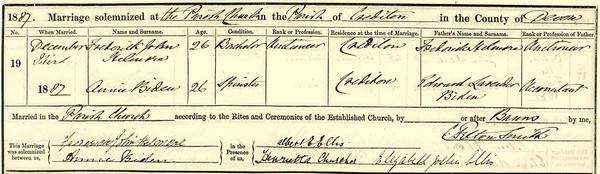 1887. Marriage solemnized at the Parish Church in the Parish of Crediton in the County of Devon
No. When Married. Name and Surname. Age. Condition. Rank or Profession. Residence at the time of Marriage. Father's Name and Surname. Rank or Profession of Father.
19 December third 1887 Frederick John 26 Bachelor Auctioneer Crediton Frederick Auctioneer
Annie Biden 26 Spinster Crediton Edward Lavender Biden Accountant
Married in the Parish Church according to the Rites and Ceremonies of the Established Church, by or after Banns by me,
Smith
This Marriage was solemnized between us, Frederick John
Annie Biden
in the Presence of us, Albert E. Ellis
Henrietta Elizabeth Ellis